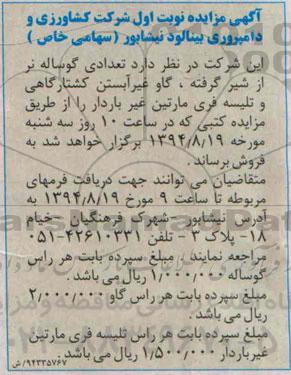 آگهی مزایده نوبت اول شرکت کشاورزی و
دامپروری بینالود نیشابور (سهامی خاص)
این شرکت در نظر دارد تعدادی گوساله نر
از شیر گرفته ، گاو غیرآبستن کشتارگاهی
و تلیسه فری مارتین غیر باردار را از طریق
مزایده کتبی که در ساعت ۱۰ روز سه شنبه
مورخه ۱۳۹۴/۸/۱۹ برگزار خواهد شد به
فروش برساند .
متقاضیان می توانند جهت دریافت فرمهای
مربوطه تا ساعت ۹ مورخ ۱۳۹۴/۸/۱۹ به
آدرس نیشابور - شهرک فرهنگیان - خیام
۱۸- پلاک ۳ - تلفن ۴۲۶۱۰۳۳۱-۰۵۱
مراجعه نمایند . مبلغ سپرده بابت هر راس
گوساله ۱/۰۰۰/۰۰۰ ریال می باشد .
مبلغ سپرده بابت هر راس گاو ۲/۰۰۰/۰۰۰
ریال می باشد .
مبلغ سپرده بابت هر راس تلیسه فری مارتین
غیرباردار ۱/۵۰۰/۰۰۰ ریال می باشد .
۹۴۳۳۵۷۶۷/ ش